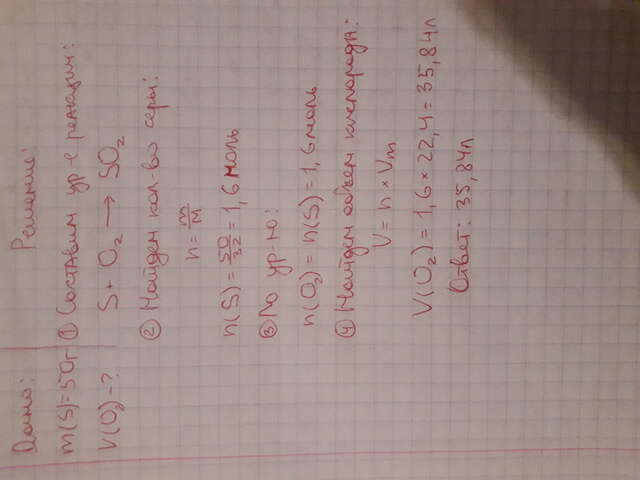 Дано:
Решение:
m(S)=50г
① Составим ур-е реакции:
V(O₂)-?
S + O₂ → SO₂
② Найдем кол-во серы:
n = m/M
n(S) = 50/32 = 1,6 моль
③ По ур-ю:
n(O₂) = n(S) = 1,6 моль
④ Найдем объем кислорода:
V = n × Vm
V(O₂) = 1,6 × 22,4 = 35,84л
Ответ: 35,84л